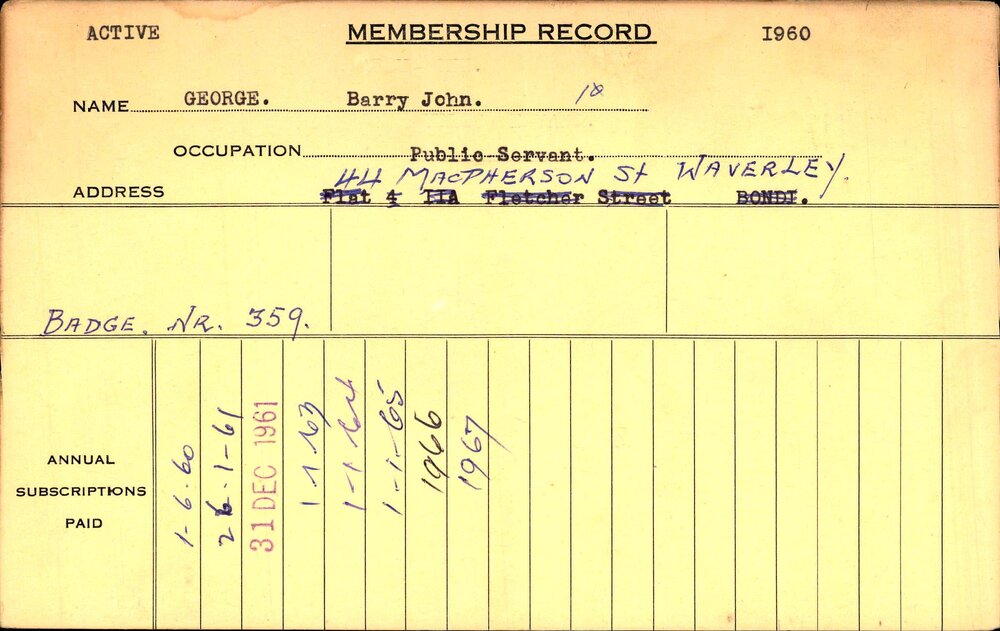 ACTIVE MEMBERSHIP RECORD I960
NAME GEORGE. Barry John. 18
OCCUPATION Public Servant.
44 MACPHERSON St WAVERLEY.
ADDRESS Flat 4 IIA Fletcher Street BONDI.
BADGE. NR. 359.
ANNUAL
SUBSCRIPTIONS
PAID
1-6-60
26-1-61
31 DEC 1961
1-1-63
1-1-64
1-1-65
1966
1967